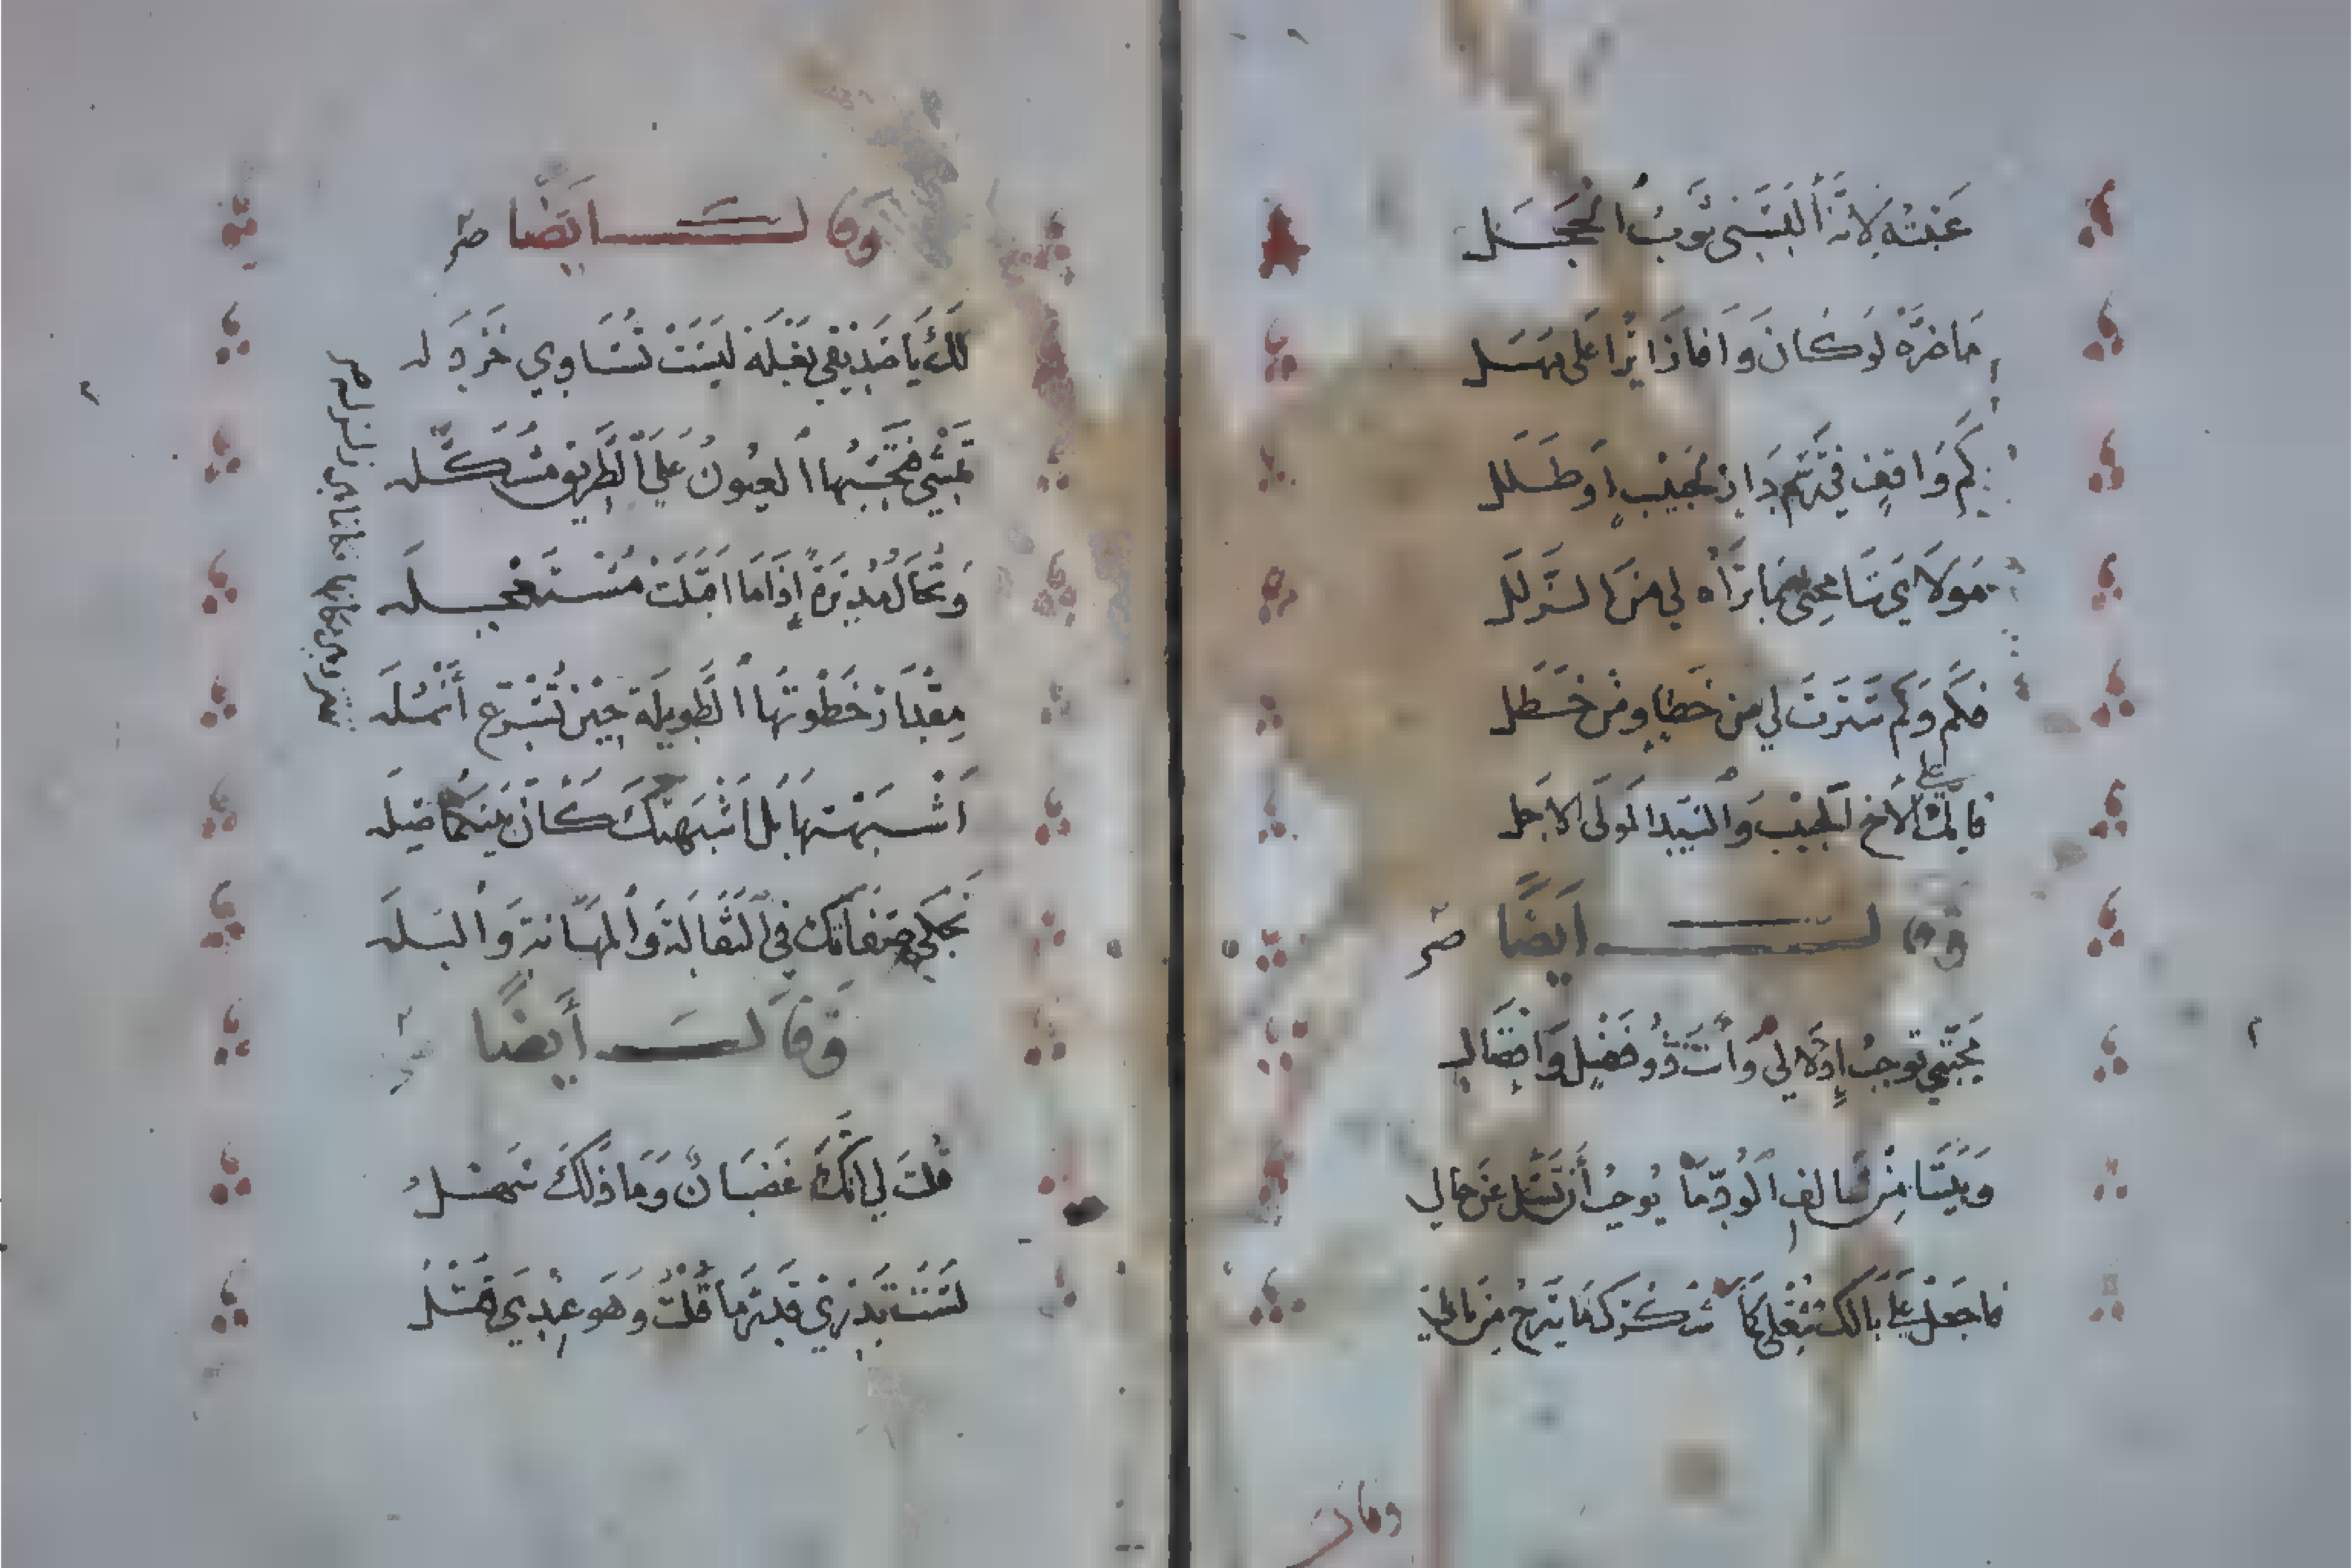 عَتَبْتُهُ لِأَنَّهُ أَلْبَسَنِي ثَوْبَ الخَجَل
مَا ضَرَّهُ لَو كَانَ وَافَا زَائِرًا عَلى مَهَل
كَم وَاقِفٍ فِي رَسْمِ دَارٍ لحَبِيْبٍ أَو طَلَل
مَولَايَ سَامِحْنِي بِمَا تَرَاهُ لي مِنَ الزَلَل
فَكَم وَكَم سَتَرتَ لي مِن خَطَاءٍ ومِن خَطَل
فَأَنْتَ الأَخ الحَبِيْب وَالسَيِّد المَولَى الاجَل
وَقَالَ أَيضًا
مَحَبَّتِي تُوجِبُ إِدْلَالِي وَأَنتَ ذُو فَضْلٍ وَإِفْضَالِ
وَبَيْنَنَا مِنْ سَالِفِ الوُدِّ مَا يُوجِبُ أَن تَسْأَل عَن حَالي
فَاجعَل عَلى بَالِكَ شُغْلِي كَمَا شُكْرُكَ مَا يَبْرَحُ مِن بَالي
وقال
وَقَالَ أَيضًا
لَكَ يَا صَدِيْقِي بَغْلَةٌ لَيسَتْ تُسَاوِي خَرْدَلَه
تَمْشِي فَتَحسَبُهَا العُيُونُ عَلَى الطَّرِيقِ مُشَكَّلَه
وَتُخَالُ مُدْبِرَةً إِذَا مَا اقْبَلَتْ مُسْتَعْجِلَه
مِقْدَارُ خَطْوتِهَا الطَّوِيلَةِ حِيْنَ تُسْرِعُ أَنْمُلَه
أَشْبَهْتَهَا بَلْ أَشْبَهَتْكَ كَأَنَّ بَيْنَكُمَا صِلَه
تَحْكِي صِفَاتِكَ فِي الثَّقَالَةِ وَالمَهَانَةِ وَالبَلَه
وَقَالَ أَيضًا
قُلتَ لي إِنَّكَ غَضْبَانُ وَمَا ذَلِكَ سَهْلُ
لَستَ تَدْرِي قَدرَ مَا قُلْتَ وَهو عِنْدِي قَتْلُ